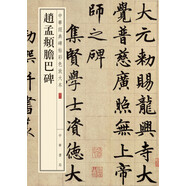 中華經典碑帖彩色放大本
趙孟頫膽巴碑
中華書局
大元勑賜龍興寺大
覺普慈廣照無上帝
師之碑
集賢學士資德大